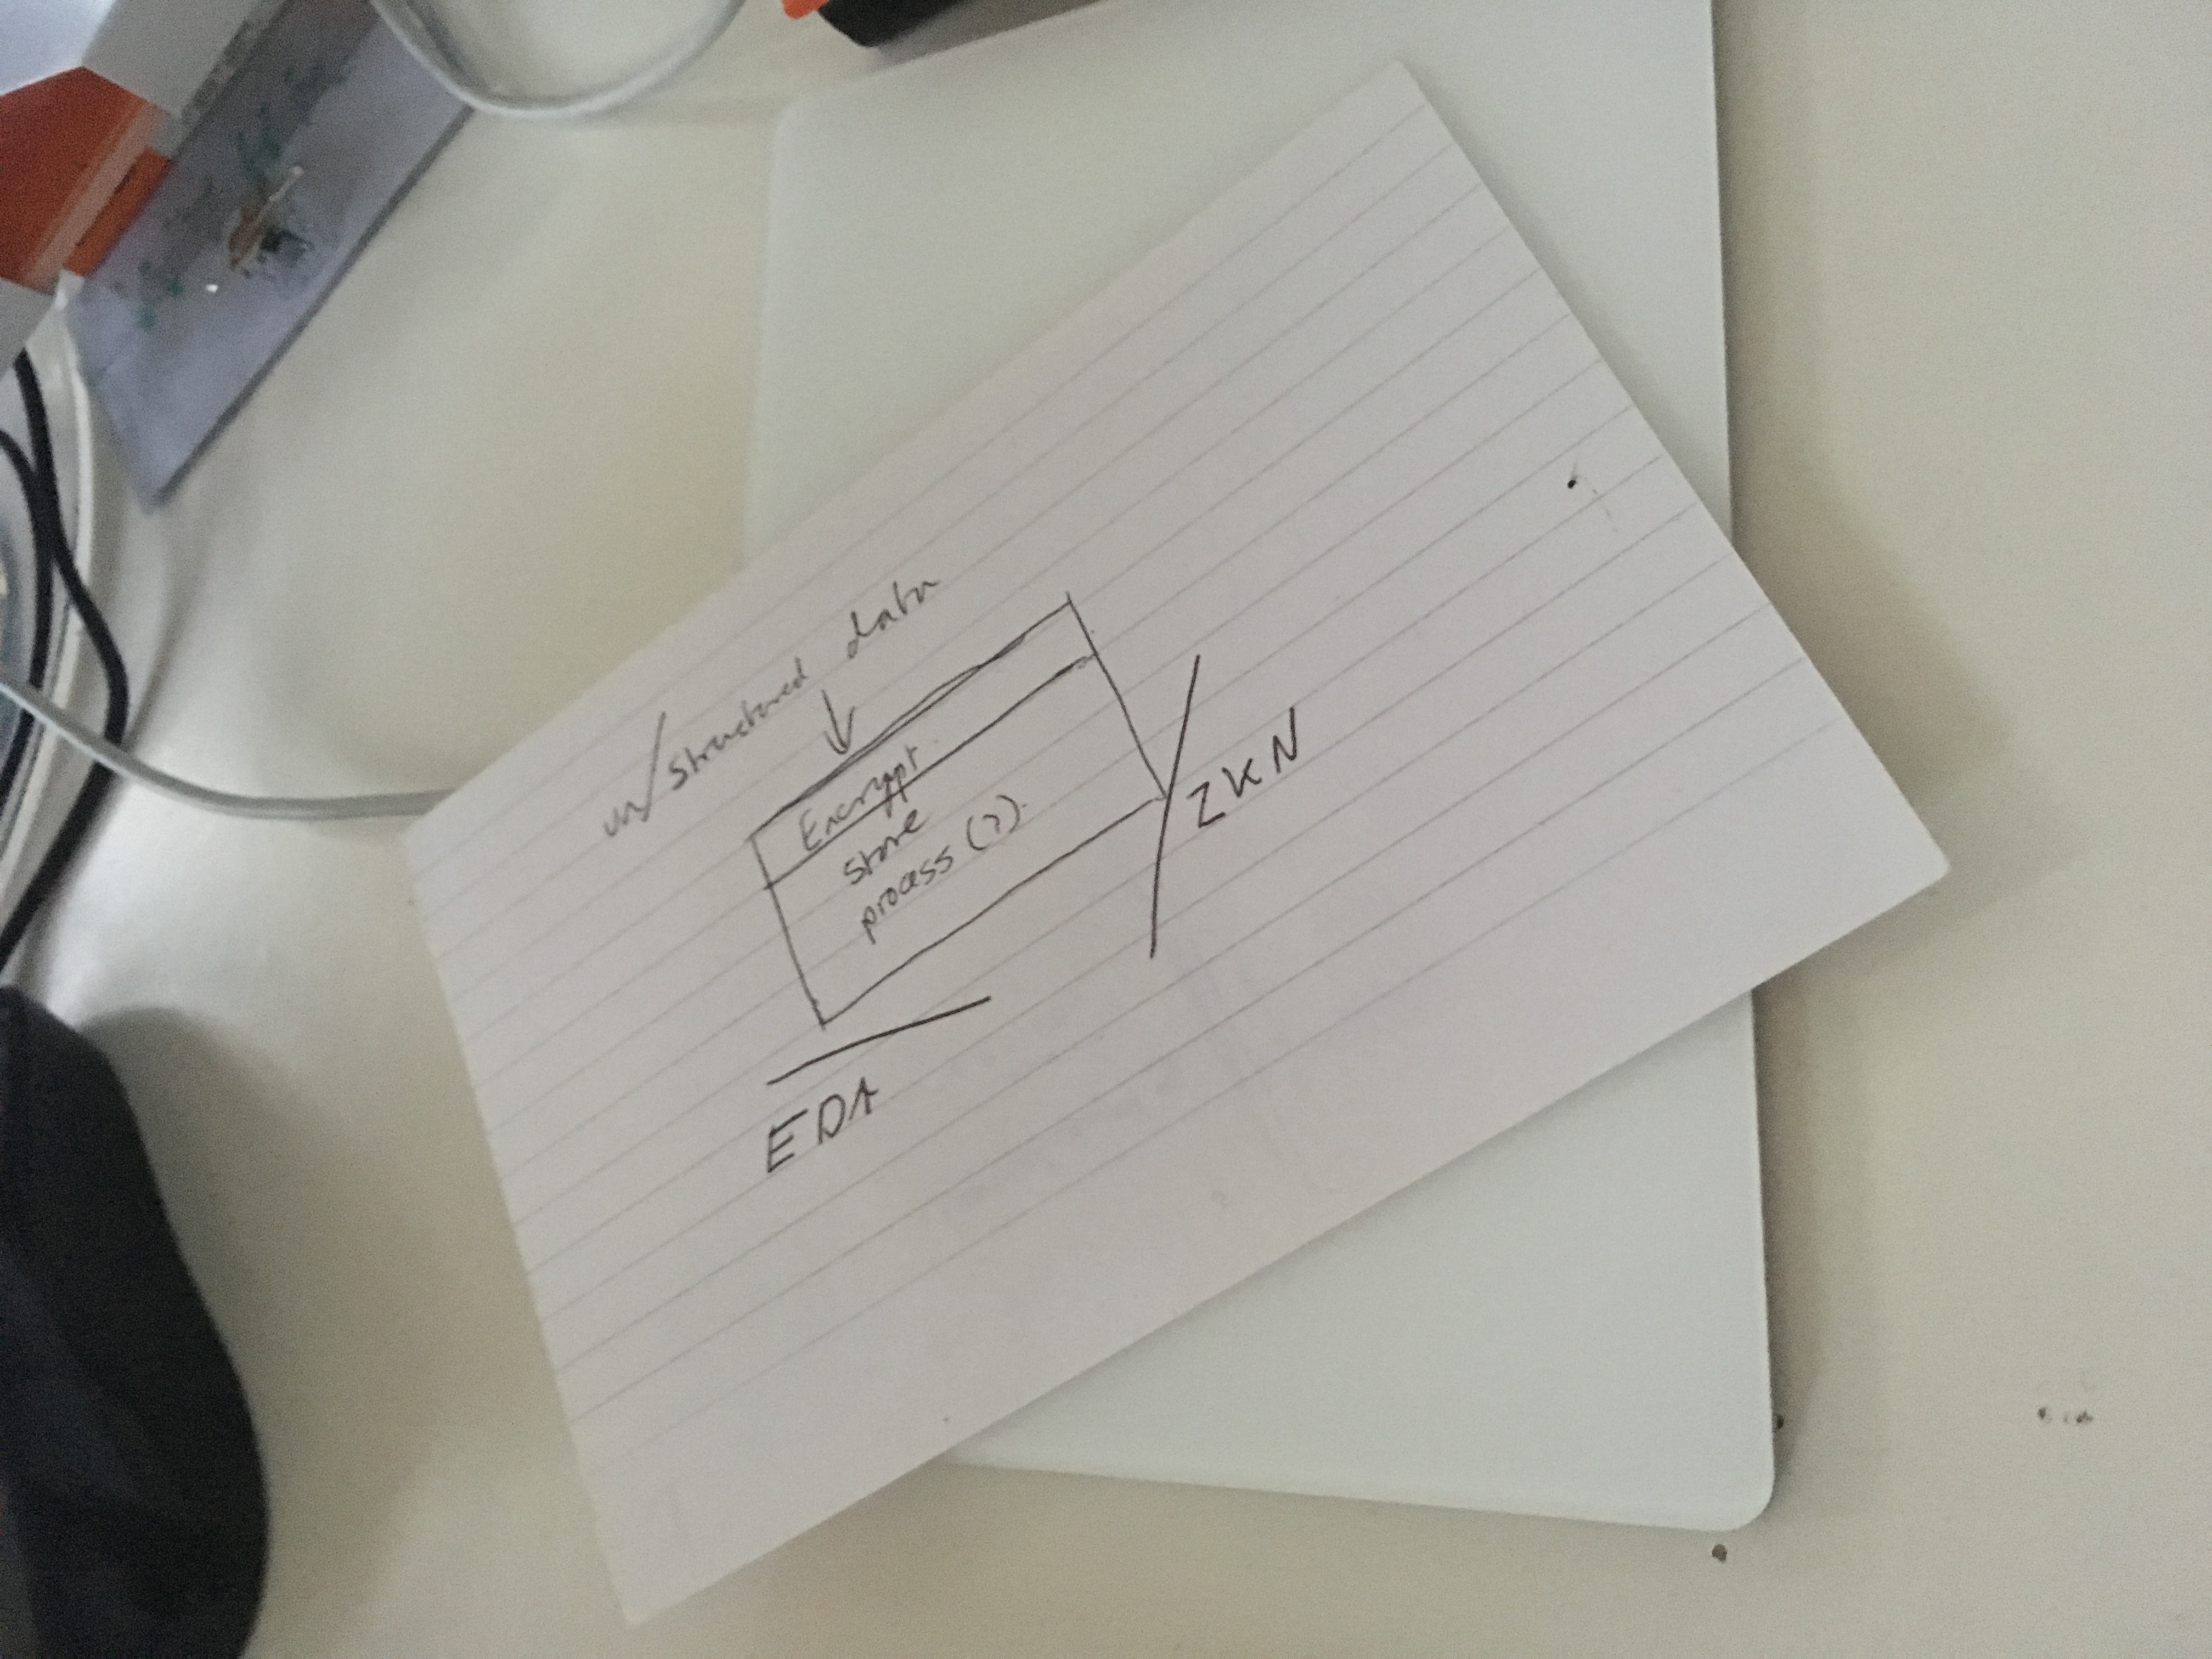 un/structured data
Encrypt.
store
process (?).
EDA
ZKN